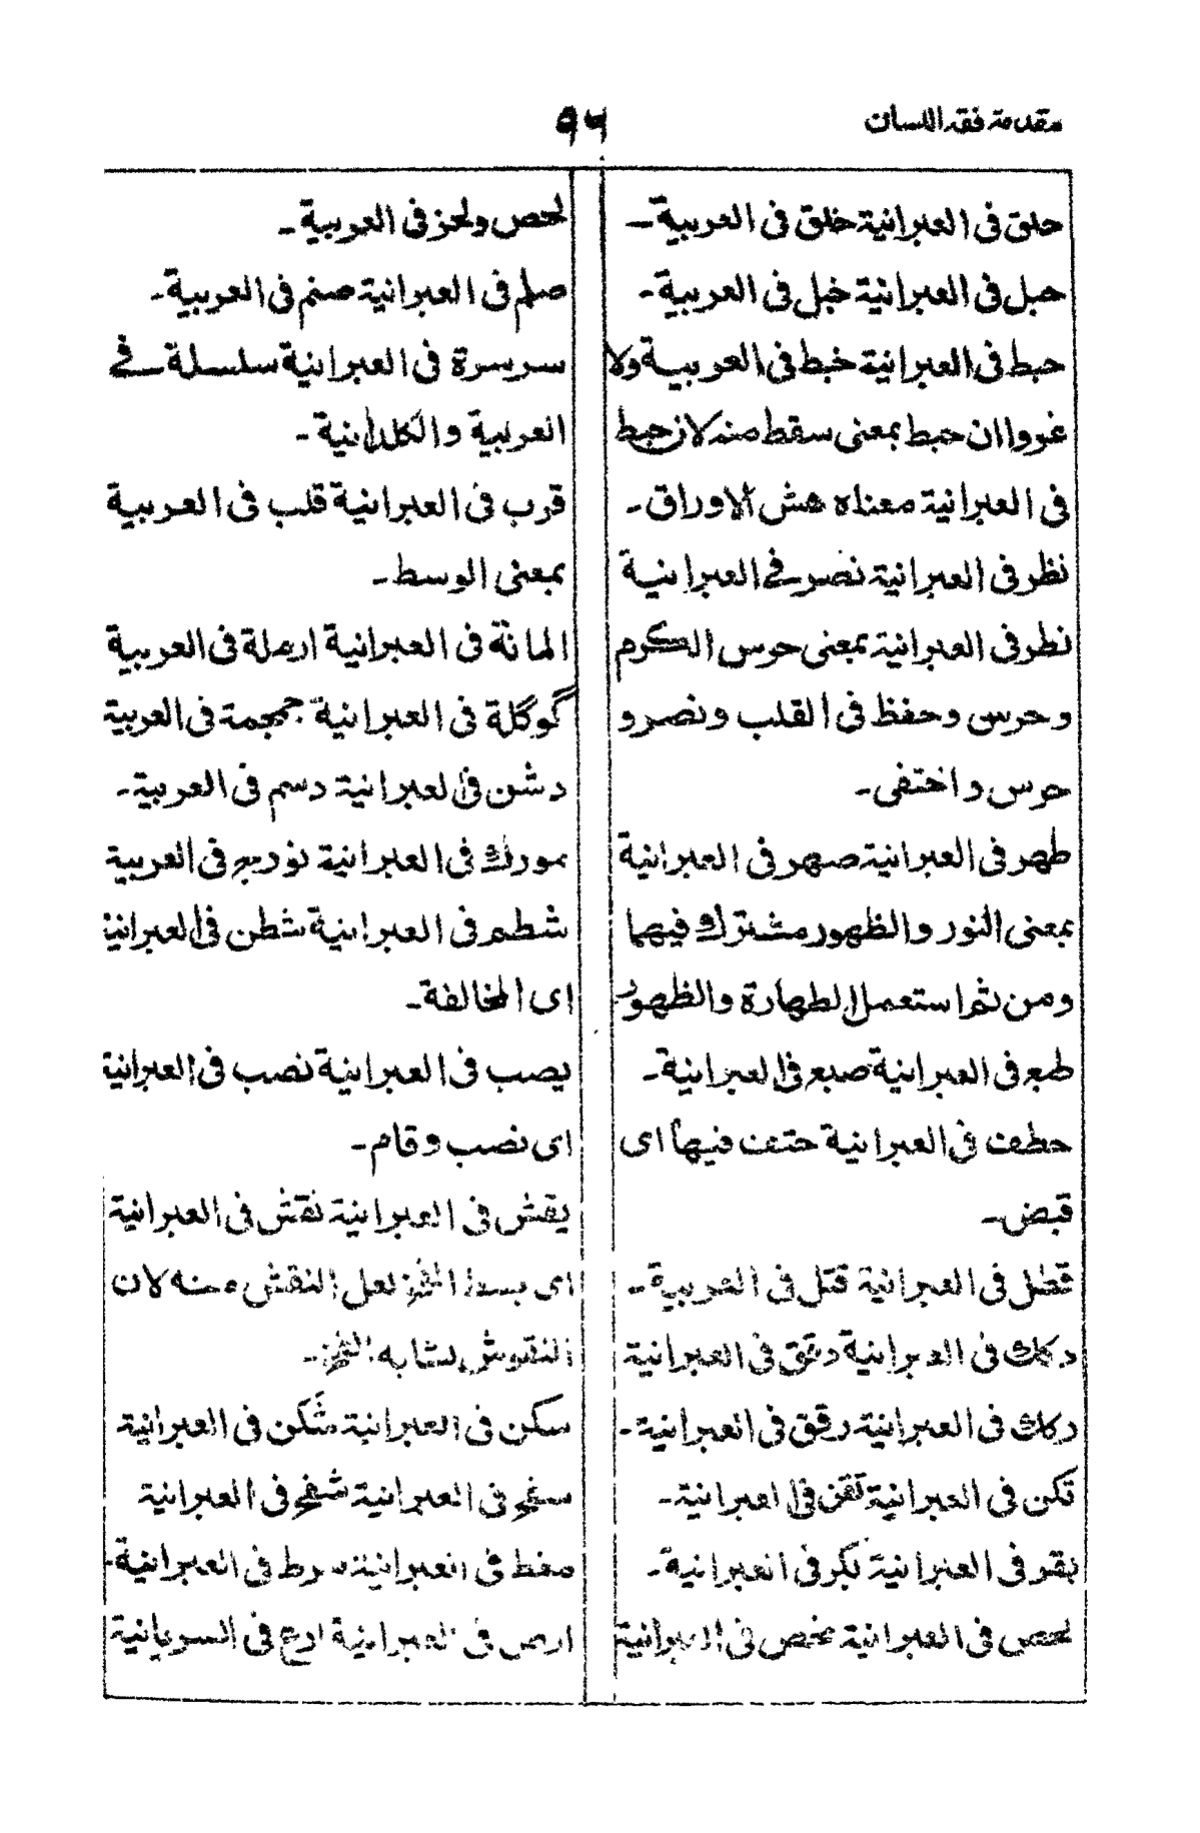 مقدمة فقه اللسان
٩٦
حلق فى العبرانية خلق فى العربية ـ
حبل فى العبرانية خبل فى العربية ـ
حبط فى العبرانية خبط فى العربية ولا
غروا ان حبط بمعنى سقط منه لان حبط
فى العبرانية معناه هش الاوراق ـ
نظر فى العبرانية نصر فى العبرانية
نطر فى العبرانية بمعنى حوس الكرم
و حرس و حفظ فى القلب و نصر و
حوس و اختفى ـ
طهر فى العبرانية صهر فى العبرانية
بمعنى النور والظهور مشترك فيهما
ومن ثم استعمل الطهارة والظهور
طبع فى العبرانية صبع فى العبرانية ـ
حطف فى العبرانية حتف فيها اى
قبض ـ
قطل فى العبرانية قتل فى العربية ـ
دكك فى العبرانية دقق فى العبرانية
ركك فى العبرانية رقق فى العبرانية ـ
تكن فى العبرانية تقن فى العبرانية ـ
بقر فى العبرانية بكر فى العبرانية ـ
لحص فى العبرانية محص فى العبرانية
لحص ولحز فى العربية ـ
صلم فى العبرانية صنم فى العربية ـ
سرسرة فى العبرانية سلسلة فى
العربية والكلدانية ـ
قرب فى العبرانية قلب فى العربية
بمعنى الوسط ـ
المانة فى العبرانية ارملة فى العربية
گوگلة فى العبرانية جمجمة فى العربية
دشن فى العبرانية دسم فى العربية ـ
مورك فى العبرانية نورج فى العربية
شطم فى العبرانية شطن فى العبرانية
اى المخالفة ـ
يصب فى العبرانية نصب فى العبرانية
اى نصب وقام ـ
يقش فى العبرانية نقش فى العبرانية
اى بسط الفخ لعل النقش منه لان
النقوش يشابه الفخ ـ
سكن فى العبرانية شكن فى العبرانية
سفح فى العبرانية شفح فى العبرانية
مغط فى العبرانية مرط فى العبرانية ـ
ارص فى العبرانية ارع فى السريانية